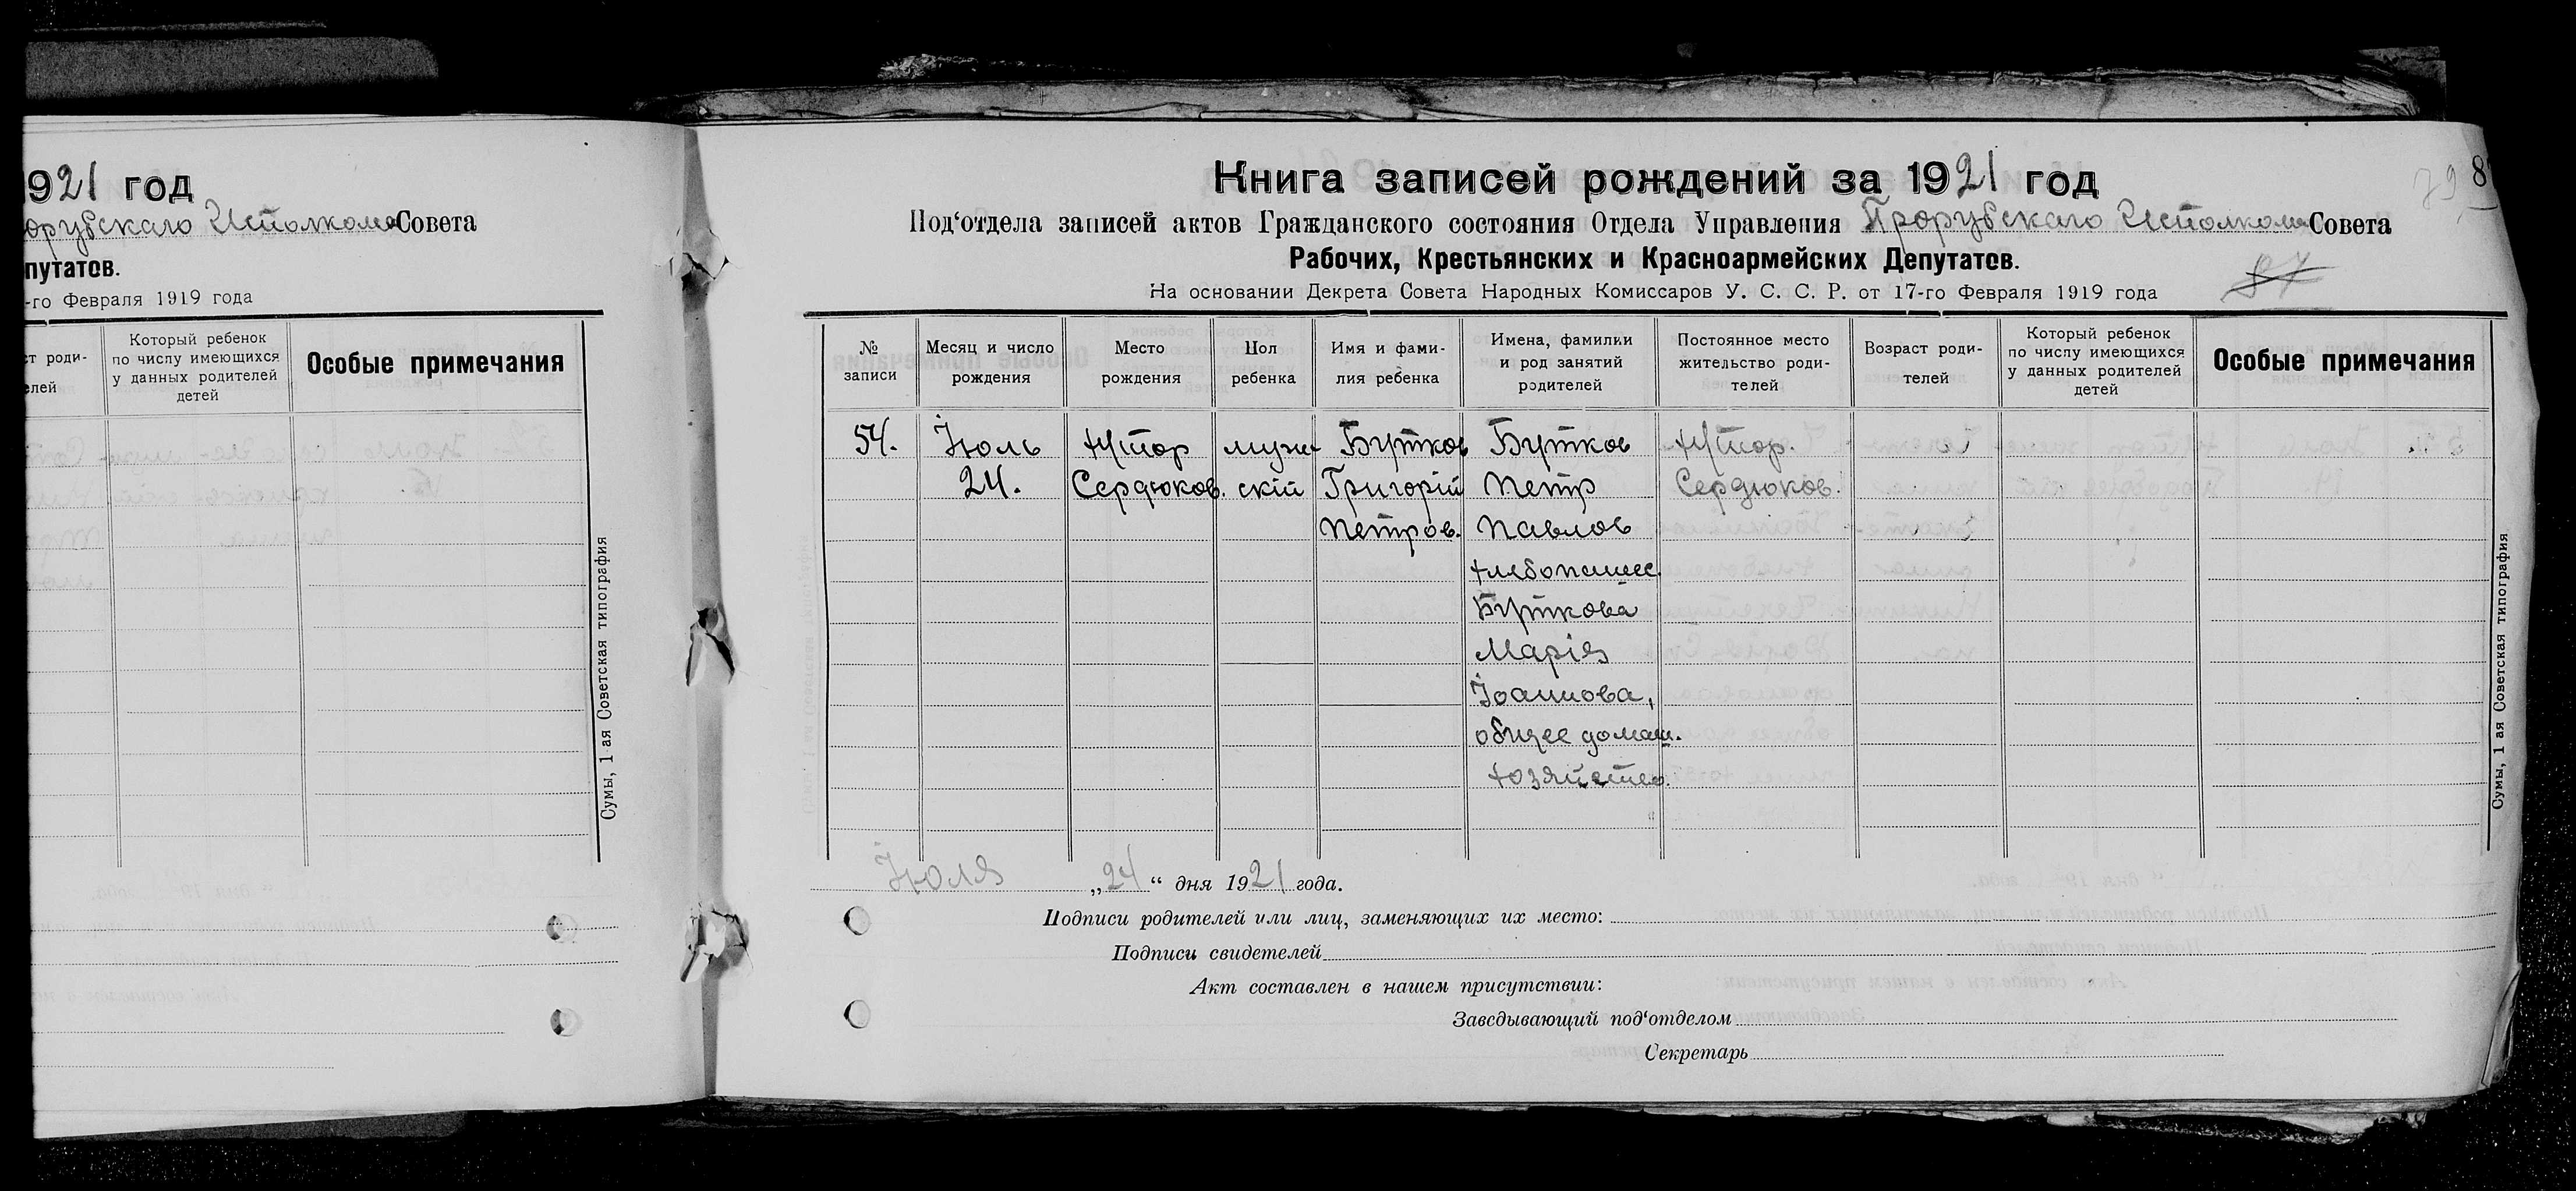 921 год
Исполкома Совета
путатов.
-го Февраля 1919 года
ст роди-
елей
Который ребенок
по числу имеющихся
у данных родителей
детей
Особые примечания
Сумы, 1 ая Советская типография
Книга записей рождений за 1921 год
79
8
Под‘отдела записей актов Гражданского состояния Отдела Управления Прорубскаго Исполкома Совета
Рабочих, Крестьянских и Красноармейских Депутатов.
87
На основании Декрета Совета Народных Комиссаров У. С. С. Р. от 17-го Февраля 1919 года
№
записи
Месяц и число
рождения
Место
рождения
Пол
ребенка
Имя и фами-
лия ребенка
Имена, фамилии
и род занятий
родителей
Постоянное место
жительство роди-
телей
Возраст роди-
телей
Который ребенок
по числу имеющихся
у данных родителей
детей
Особые примечания
54.
Іюль
24.
Хутор
Сердюков.
муж-
скій
Бутков
Григорій
Петров.
Бутков
Петр
Павлов
хлебопашес.
Буткова
Марія
Іоаннова,
общее домаш.
хозяйство.
Хутор.
Сердюков.
Сумы, 1 ая Советская типография
Іюля „24“ дня 1921 года.
Подписи родителей или лиц, заменяющих их место:
Подписи свидетелей
Акт составлен в нашем присутствии:
Заведывающий под‘отделом
Секретарь